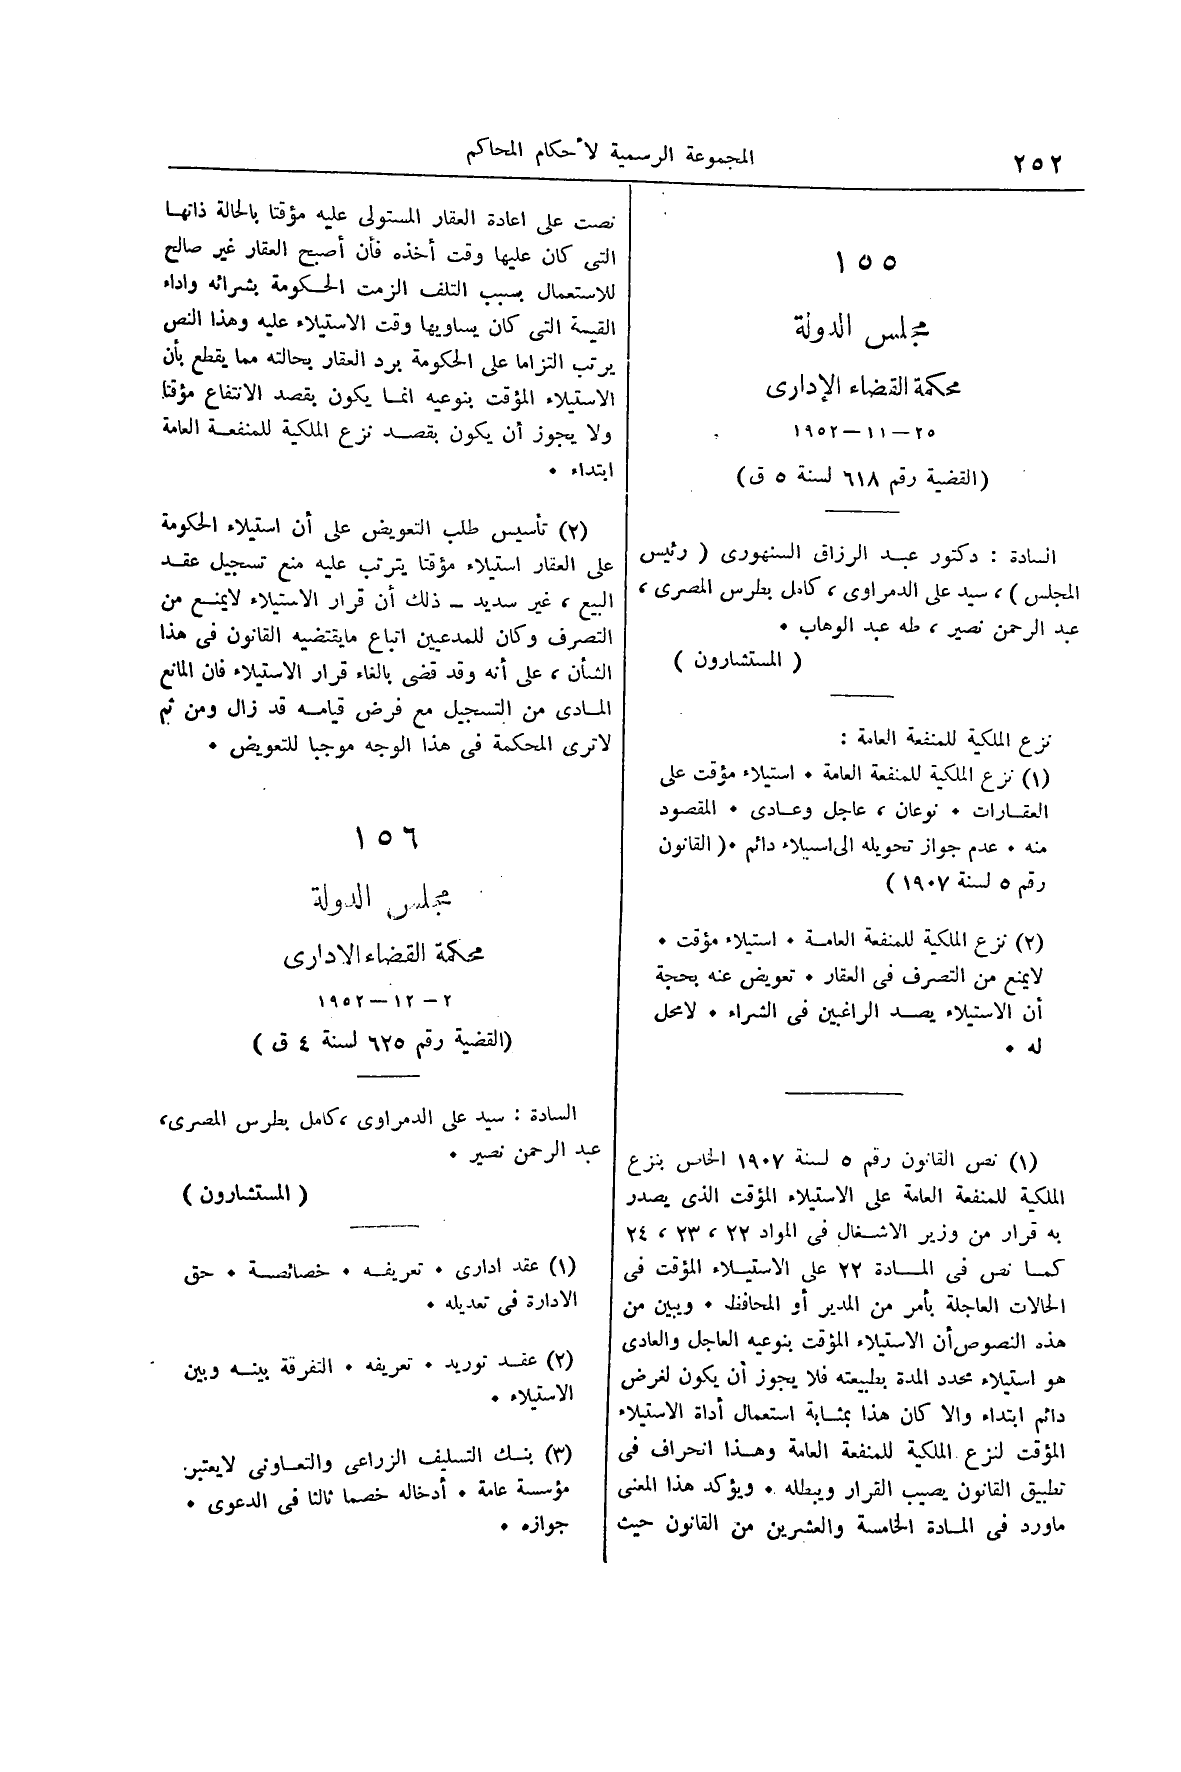 ٢٥٢
المجموعة الرسمية لأحكام المحاكم
١٥٥
مجلس الدولة
محكمة القضاء الإدارى
٢٥ – ١١ – ١٩٥٢
(القضية رقم ٦١٨ لسنة ٥ ق)
السادة : دكتور عبد الرزاق السنهورى ( رئيس
المجلس ) ، سيد على الدمراوى ، كامل بطرس المصرى ،
عبد الرحمن نصير ، طه عبد الوهاب .
( المستشارون )
نزع الملكية للمنفعة العامة :
(١) نزع الملكية للمنفعة العامة . استيلاء مؤقت على
العقارات . نوعان ، عاجل وعادى . المقصود
منه . عدم جواز تحويله الى استيلاء دائم .( القانون
رقم ٥ لسنة ١٩٠٧ )
(٢) نزع الملكية للمنفعة العامة . استيلاء مؤقت .
لايمنع من التصرف فى العقار . تعويض عنه بحجة
أن الاستيلاء يصد الراغبين فى الشراء . لامحل
له .
(١) نص القانون رقم ٥ لسنة ١٩٠٧ الخاص بنزع
الملكية للمنفعة العامة على الاستيلاء المؤقت الذى يصدر
به قرار من وزير الاشغال فى المواد ٢٢ ، ٢٣ ، ٢٤
كما نص فى المادة ٢٢ على الاستيلاء المؤقت فى
الحالات العاجلة بأمر من المدير أو المحافظ . ويبين من
هذه النصوص أن الاستيلاء المؤقت بنوعيه العاجل والعادى
هو استيلاء محدد المدة بطبيعته فلا يجوز أن يكون لغرض
دائم ابتداء والا كان هذا بمثابة استعمال أداة الاستيلاء
المؤقت لنزع الملكية للمنفعة العامة وهذا انحراف فى
تطبيق القانون يصيب القرار ويبطله . ويؤكد هذا المعنى
ماورد فى المادة الخامسة والعشرين من القانون حيث
نصت على اعادة العقار المستولى عليه مؤقتا بالحالة ذاتها
التى كان عليها وقت أخذه فأن أصبح العقار غير صالح
للاستعمال بسبب التلف الزمت الحكومة بشرائه واداء
القيمة التى كان يساويها وقت الاستيلاء عليه وهذا النص
يرتب التزاما على الحكومة برد العقار بحالته مما يقطع بأن
الاستيلاء المؤقت بنوعيه انما يكون بقصد الانتفاع مؤقتا
ولا يجوز أن يكون بقصد نزع الملكية للمنفعة العامة
ابتداء .
(٢) تأسيس طلب التعويض على أن استيلاء الحكومة
على العقار استيلاء مؤقتا يترتب عليه منع تسجيل عقد
البيع ، غير سديد – ذلك أن قرار الاستيلاء لايمنع من
التصرف وكان للمدعيين اتباع مايقتضيه القانون فى هذا
الشأن ، على أنه وقد قضى بالغاء قرار الاستيلاء فان المانع
المادى من التسجيل مع فرض قيامه قد زال ومن ثم
لاترى المحكمة فى هذا الوجه موجبا للتعويض .
١٥٦
مجلس الدولة
محكمة القضاء الادارى
٢ – ١٢ – ١٩٥٢
(القضية رقم ٦٢٥ لسنة ٤ ق )
السادة : سيد على الدمراوى ، كامل بطرس المصرى ،
عبد الرحمن نصير .
( المستشارون )
(١) عقد ادارى . تعريفه . خصائصة . حق
الادارة فى تعديله .
(٢) عقد توريد . تعريفه . التفرقة بينه وبين
الاستيلاء .
(٣) بنك التسليف الزراعى والتعاونى لايعتبر
مؤسسة عامة . أدخاله خصما ثالثا فى الدعوى .
جوازه .